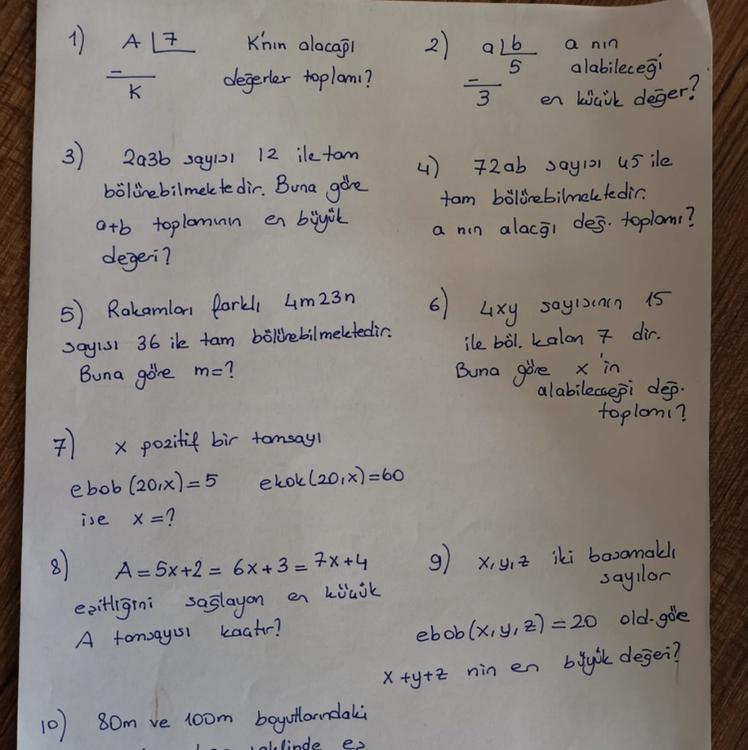 1) A 7 K'nın alacağı
- değerler toplamı?
K
2) a b a nın
5 alabileceği
- en küçük değer?
3
3) 2a3b sayısı 12 ile tam
bölünebilmektedir. Buna göre
a+b toplamının en büyük
değeri?
4) 72ab sayısı 45 ile
tam bölünebilmektedir.
a nın alacğı değ. toplamı?
5) Rakamları farklı 4m23n
sayısı 36 ile tam bölünebilmektedir.
Buna göre m=?
6) 4xy sayısının 15
ile böl. kalan 7 dir.
Buna göre x'in
alabileceği değ.
toplamı?
7) x pozitif bir tamsayı
ebob(20,x)=5 ekok(20,x)=60
ise x=?
8) A=5x+2=6x+3=7x+4
eşitliğini sağlayan en küçük
A tamsayısı kaçtır?
9) x,y,z iki basamaklı
sayılar
ebob(x,y,z)=20 old.göre
x+y+z nin en büyük değeri?
10) 80m ve 100m boyutlarındaki
şeklinde eş